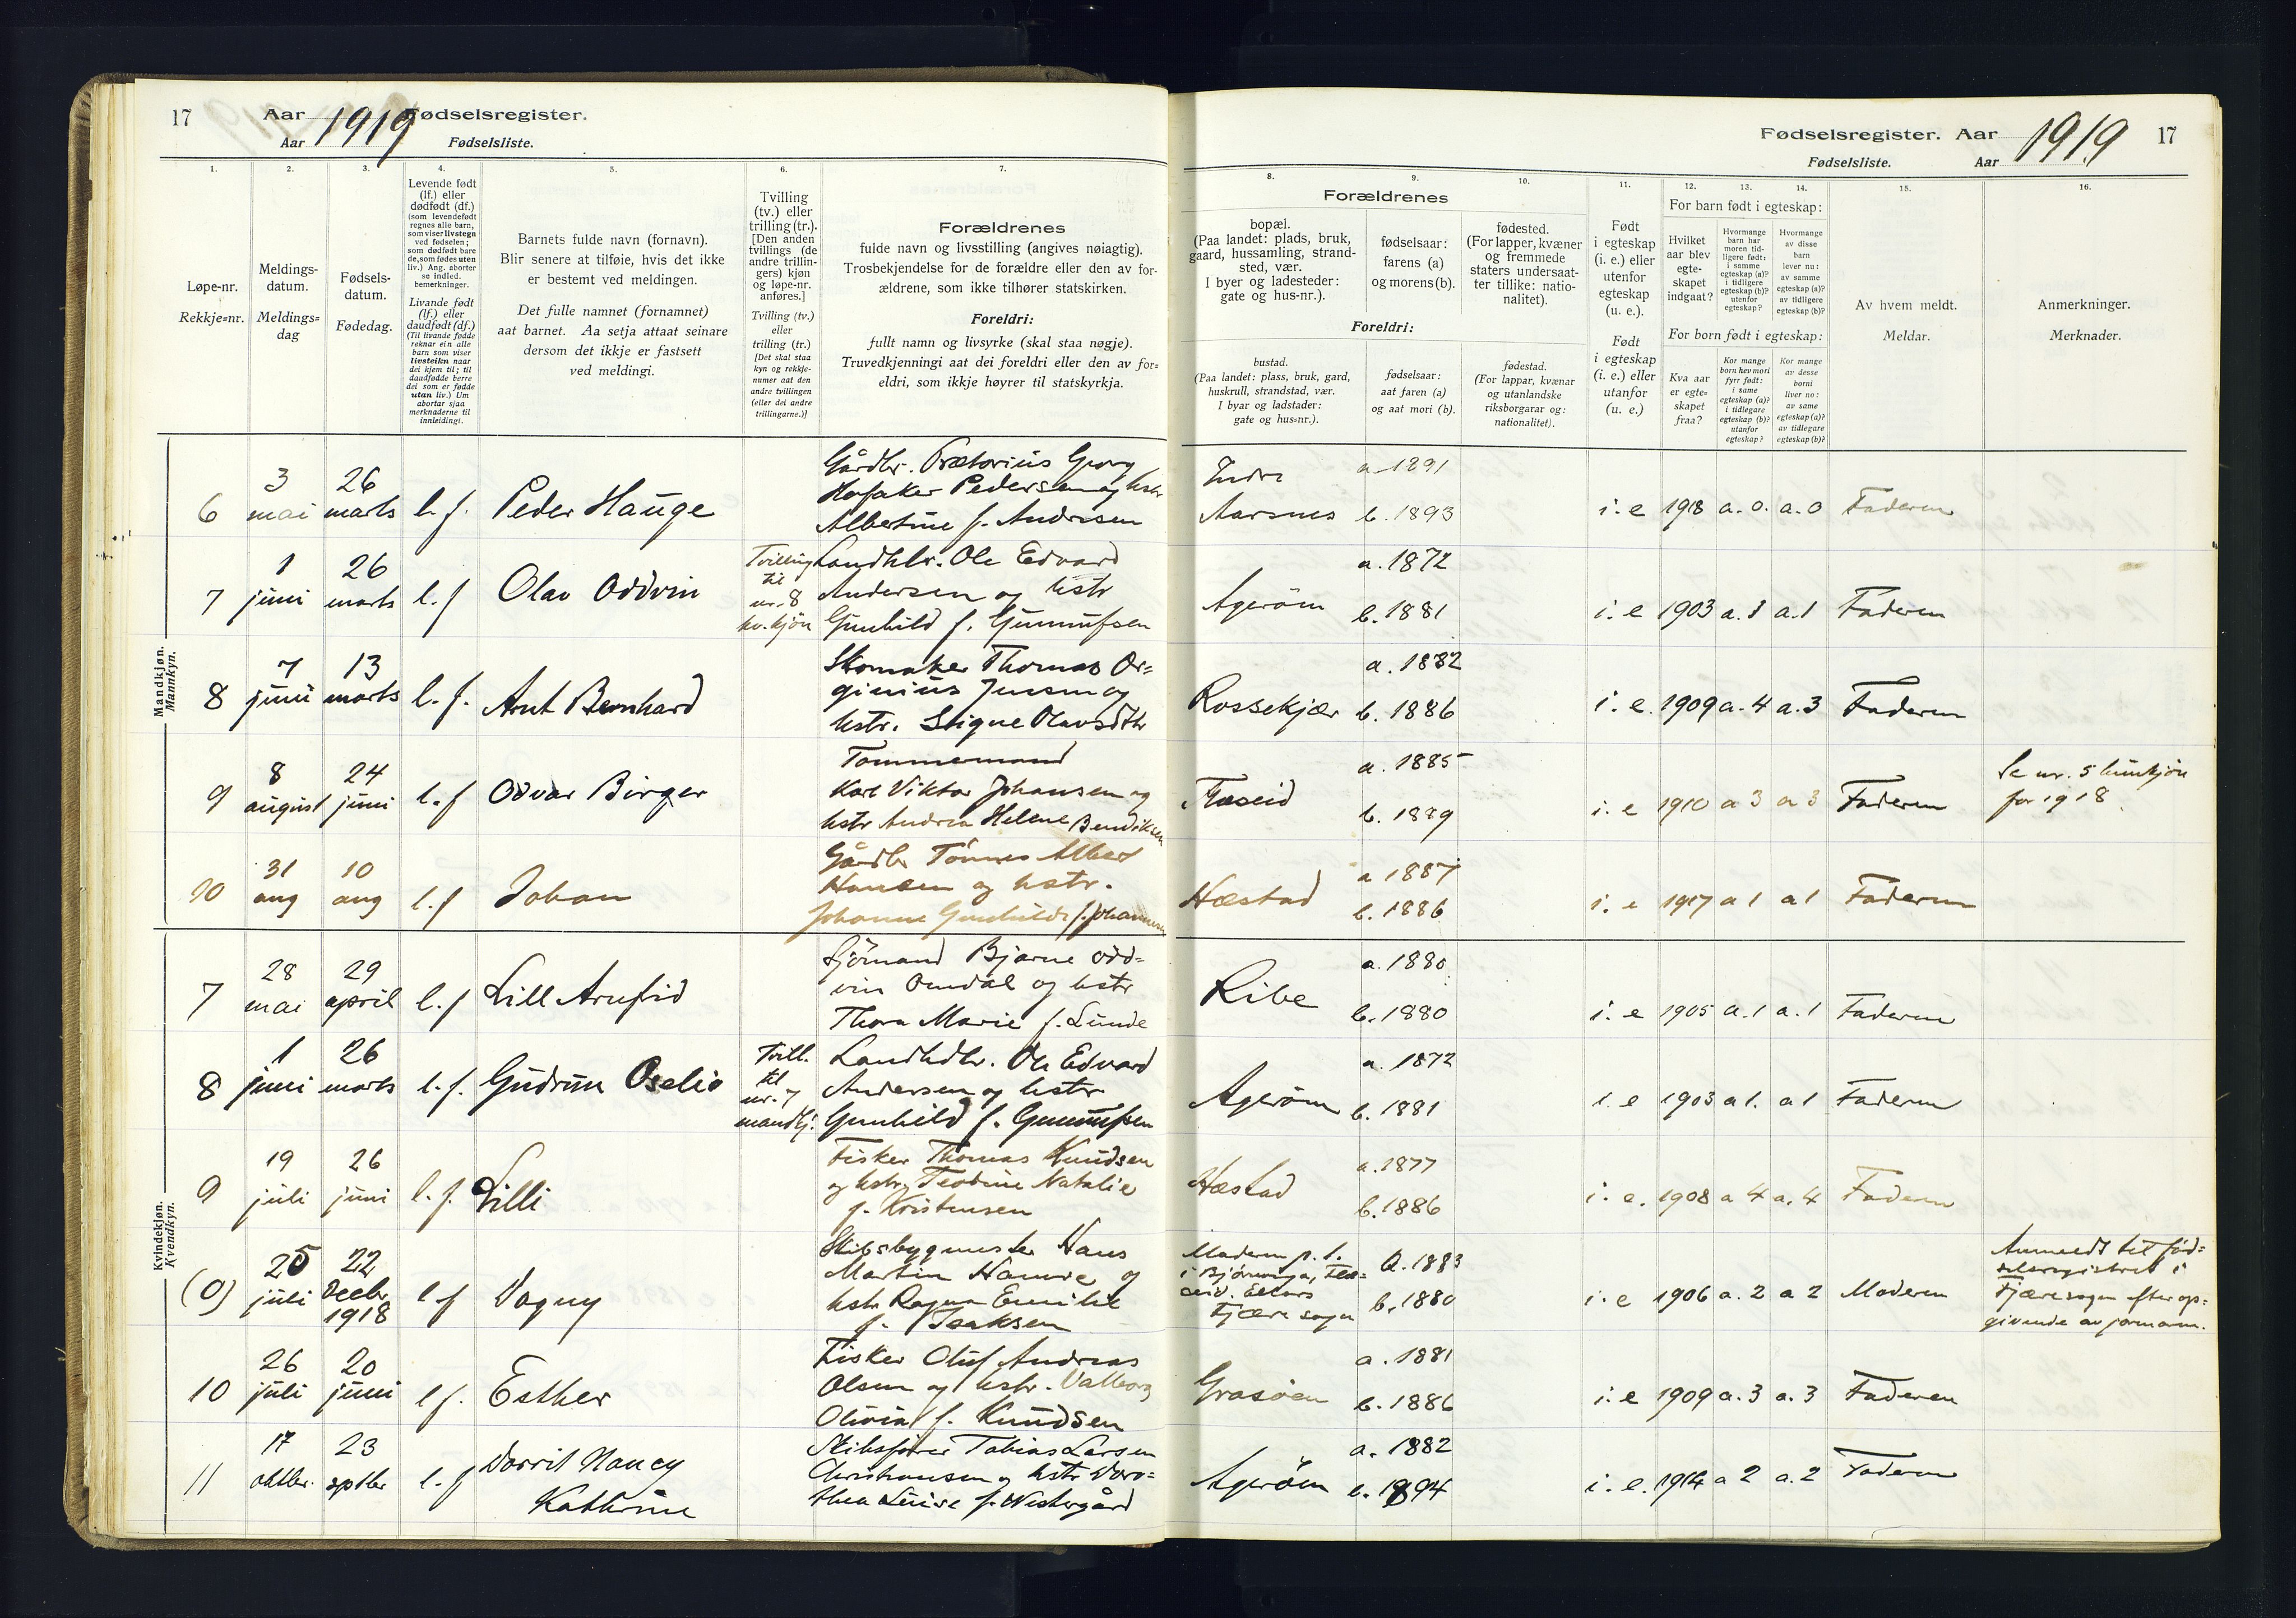 17
Aar 1919 Fødselsregister.
Aar Fødselsliste.
1.
2.
3.
4.
5.
6.
7.
Løpe-nr.
Rekkje=nr.
Meldings-
datum.
Meldings=
dag
Fødsels-
datum.
Fødedag.
Levende født
(lf.) eller
dødfødt (df.)
(som levendefødt
regnes alle barn,
som viser livstegn
ved fødselen;
som dødfødt bare
de, som fødes uten
liv.) Ang. aborter
se indled.
bemerkninger.
Livande født
(lf.) eller
daudfødt (df.)
(Til livande fødde
reknar ein alle
barn som viser
livsteikn naar
dei kjem til; til
daudfødde berre
dei som er fødde
utan liv.) Um
abortar sjaa
merknaderne til
innleidingi.
Barnets fulde navn (fornavn).
Blir senere at tilføie, hvis det ikke
er bestemt ved meldingen.
Det fulle namnet (fornamnet)
aat barnet. Aa setja attaat seinare
dersom det ikkje er fastsett
ved meldingi.
Tvilling
(tv.) eller
trilling (tr.).
[Den anden
tvillings (de
andre trillin-
gers) kjøn
og løpe-nr.
anføres.]
Tvilling (tv.)
eller
trilling (tr.)
[Det skal staa
kyn og rekkje-
numer aat den
andre tvillingen
(eller dei andre
trillingarne.)]
Forældrenes
fulde navn og livsstilling (angives nøiagtig).
Trosbekjendelse for de forældre eller den av for-
ældrene, som ikke tilhører statskirken.
Foreldri:
fullt namn og livsyrke (skal staa nøgje).
Truvedkjenningi aat dei foreldri eller den av for=
eldri, som ikkje høyrer til statskyrkja.
Mandkjøn.
Mannkyn.
6 3 mai 26 marts l. f. Peder Hauge
Gårdbr. Prætorius Georg
Pedersen og hstr
Albertine f. Andresen
7 1 juni 26 marts l. f Olav Oddvin
Tvilling
til
nr. 8
kv. kjøn
Landhdlr. Ole Edvard
Andersen og hstr
Gunhild f. Gunnufsen
8 7 juni 13 marts l. f. Arnt Bernhard
Skomaker Thomas Or=
ginius Jensen og
hstr. Signe Olavsdtr
9 8 august 24 juni l. f Odvar Birger
Tømmermand
Karl Viktor Johansen og
hstr Andrea Helene Bendiksen
10 31 aug 10 aug l. f Johan
Gårdbr Tønnes Albert
Hansen og hstr.
Johanne Gunhilde f. Johannesen
Kvindekjøn.
Kvendkyn.
7 28 mai 29 april l. f Lill Arnfrid
Sjömand Bjarne Odd=
vin Omdal og hstr
Thora Marie f. Lunde
8 1 juni 26 marts l. f. Gudrun Oselio
Tvill.
til
nr. 7
mandkj.
Landhdlr. Ole Edvard
Andersen og hstr
Gunhild f. Gunnufsen
9 19 juli 26 juni l. f. Lilli
Fisker Thomas Knudsen
og hstr Teodine Natalie
f. Kristensen
(0) 25 juli 22 decbr 1918 l f Dagny
Skibsbygmester Hans
Martin Hansen og
hstr Ragna Emilie
f. Isaksen
10 26 juli 20 juni l f. Esther
Fisker Oluf Andreas
Olsen og hstr. Valborg
Olivia f. Knudsen
11 17 oktbr. 23 sptbr l. f Dorrit Nancy
Kathrine
Skibsfører Tobias Larsen
Christiansen og hstr Doro=
thea Luise f. Westergård
Fødselsregister. Aar 1919 17
Fødselsliste. Aar
8.
9.
10.
11.
12.
13.
14.
15.
16.
Forældrenes
bopæl.
(Paa landet: plads, bruk,
gaard, hussamling, strand-
sted, vær.
I byer og ladesteder:
gate og hus-nr.).
fødselsaar:
farens (a)
og morens (b).
fødested.
(For lapper, kvæner
og fremmede
staters undersaat-
ter tillike: natio-
nalitet).
Foreldri:
bustad.
(Paa landet: plass, bruk, gard,
huskrull, strandstad, vær.
I byar og ladstader:
gate og hus=nr.).
fødselsaar:
aat faren (a)
og aat mori (b).
fødestad.
(For lappar, kvænar
og utanlandske
riksborgarar og:
nationalitet).
Født
i egteskap
(i. e.) eller
utenfor
egteskap
(u. e.).
Født
i egteskap
(i. e.) eller
utanfor
(u. e.)
For barn født i egteskap:
Hvilket
aar blev
egte-
skapet
indgaat?
Hvormange
barn har
moren tid-
ligere født:
i samme
egteskap (a)?
i tidligere
egteskap (b)?
utenfor
egteskap?
Hvormange
av disse
barn
lever nu:
av samme
egteskap (a)?
av tidligere
egteskap (b)?
For born født i egteskap:
Kva aar
er egte-
skapet
fraa?
Kor mange
born hev mori
fyrr født:
i same
egteskap (a)?
i tidlegare
egteskap (b)?
utanfor
egteskap?
Kor mange
av desse
borni
liver no:
av same
egteskap (a)?
av tidlegare
egteskap (b)?
Av hvem meldt.
Meldar.
Anmerkninger.
Merknader.
Indre
Aarsnes
a 1891
b. 1893
i. e 1918 a. 0. a. 0 Faderen
Ågerøen
a. 1872
b. 1881
i. e 1903 a. 1 a. 1 Faderen
Rossekjær
a. 1882
b. 1886
i. e. 1909 a. 4 a. 3 Faderen
Fløseid
a. 1885
b. 1889
i. e 1910 a 3 a 3 Faderen
Se nr. 5 kvinkjøn
for 1918.
Hæstad
a 1887
b. 1886
i. e 1917 a 1 a 1 Faderen
Ribe
a. 1880
b. 1880
i. e 1905 a. 1 a. 1 Faderen
Agerøen
a. 1872
b. 1881
i. e 1903 a 1. a 1 Faderen
Hæstad
a. 1877
b. 1886
i. e. 1908 a 4 a. 4 Faderen
Moderen p. t.
Ellers
Fjære sogn
a. 1883
b. 1880
i. e 1906 a. 2 a 2 Moderen
Anmeldt til fød=
selsregistret i
Fjære sogn efter op=
givende av jormoren.
Grasøen
a. 1881
b. 1886
i. e 1909 a. 3 a. 3 Faderen
Agerøen
a. 1882
b. 1894
i. e. 1914 a 2 a. 2 Faderen